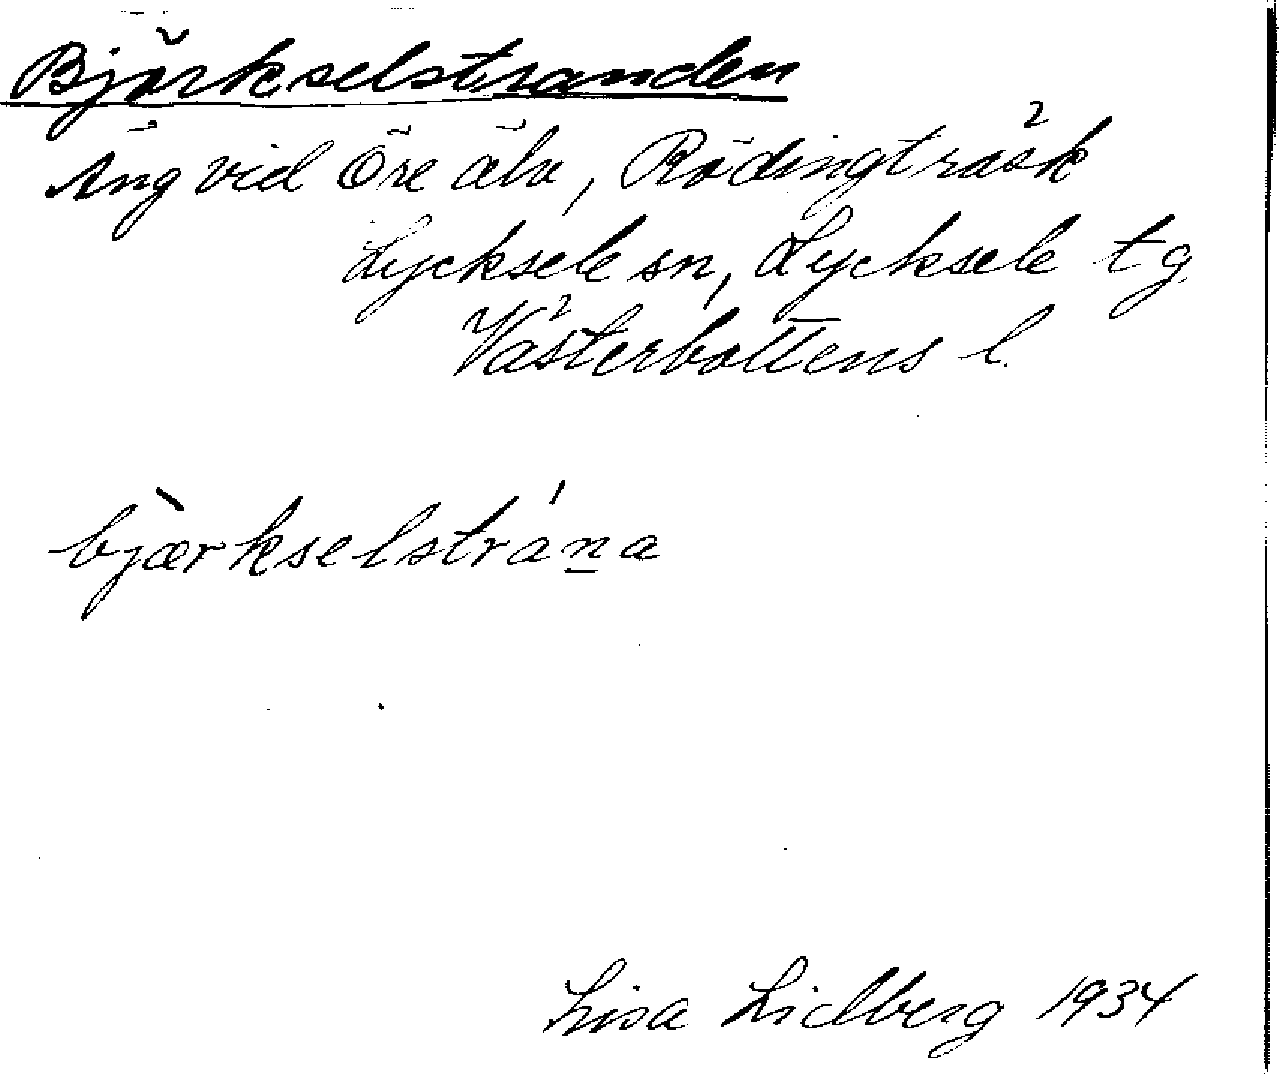 Björkselstranden
Äng vid Öre älv, Rödingträsk
Lycksele sn, Lycksele tg
Västerbottens l.
bjæ̀rkselstrána
Lisa Lidberg 1934